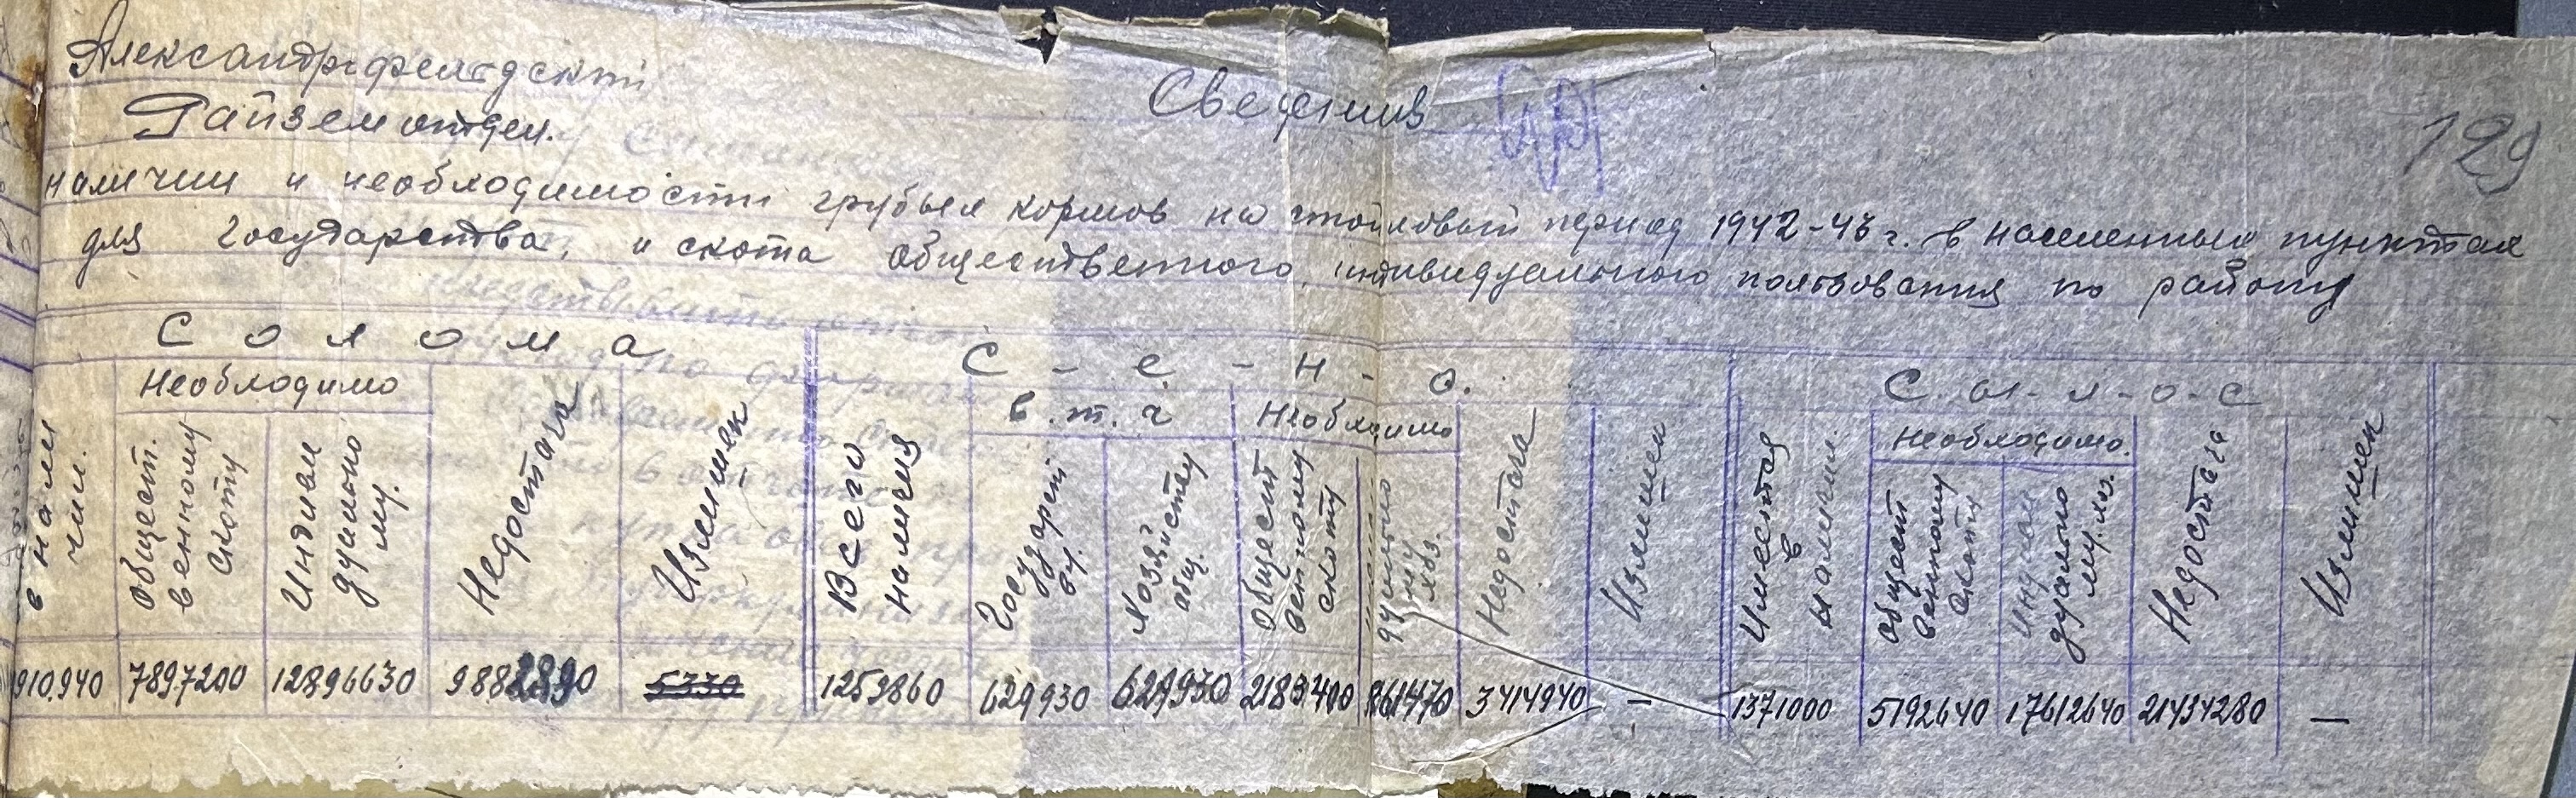 Александрфельдский
Райземотдел.
Сведения
129
наличии и необходимости грубых кормов на стойловый период 1942-43 г. в населенных пунктах
для государства, и скота общественного, индивидуального пользования по району
Солома
С-е-н-о.
С.и-л-о-с
Необходимо
в.т.ч
Необходимо
Необходимо.
в нали
чии.
Общест.
венному
скоту
Индиви
дуально
му.
Недостача
Излишек
Всего
наличия
Государст
ву.
Хозяйству
общ.
Общест
венному
скоту
дуально
му
хоз.
Недостача
Излишек
Имеется
в
наличии.
Общест
венному
скоту
Индиви
дуально
му. хоз.
Недостача
Излишек
910.940 7897200 12896630 9882890 5330 1259860 629930 629930 2183400 3414940 — 1371000 5192640 17612640 21434280 —